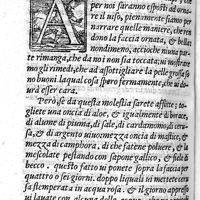 A per noi saranno esposti ad orna
re il uiso, pienamente siamo per
narrare quelle maniere, che ren
dono la faccia ornata, & bella:
nondimeno, accioche niuna par
te rimanga, che da noi non sia tocca, ui mostrare
mo gli rimedi, che ad assottigliare la pelle grossa so
no buoni laqual cosa spero fermamente, che ui do
urà esser cara.
Però se da questa molestia sarete afflitte: to
gliete una oncia di aloe, & igualmente di borace,
di alume di piuma, di sale, di cardamomo, di ce-
rusa, & di argento uiuo: mezza oncia di mastice,
mezza di camphora, di che fatene poluere, & la
mescolate pestando con sapone gallico, & fiele di
becco. questo fatto ui ponete sopra la faccia per
quattro o sei giorni, doppo liquali ui metterete ce
ra stemperata in acqua rosa. & il giorno appresso
ui lauate con alcuna